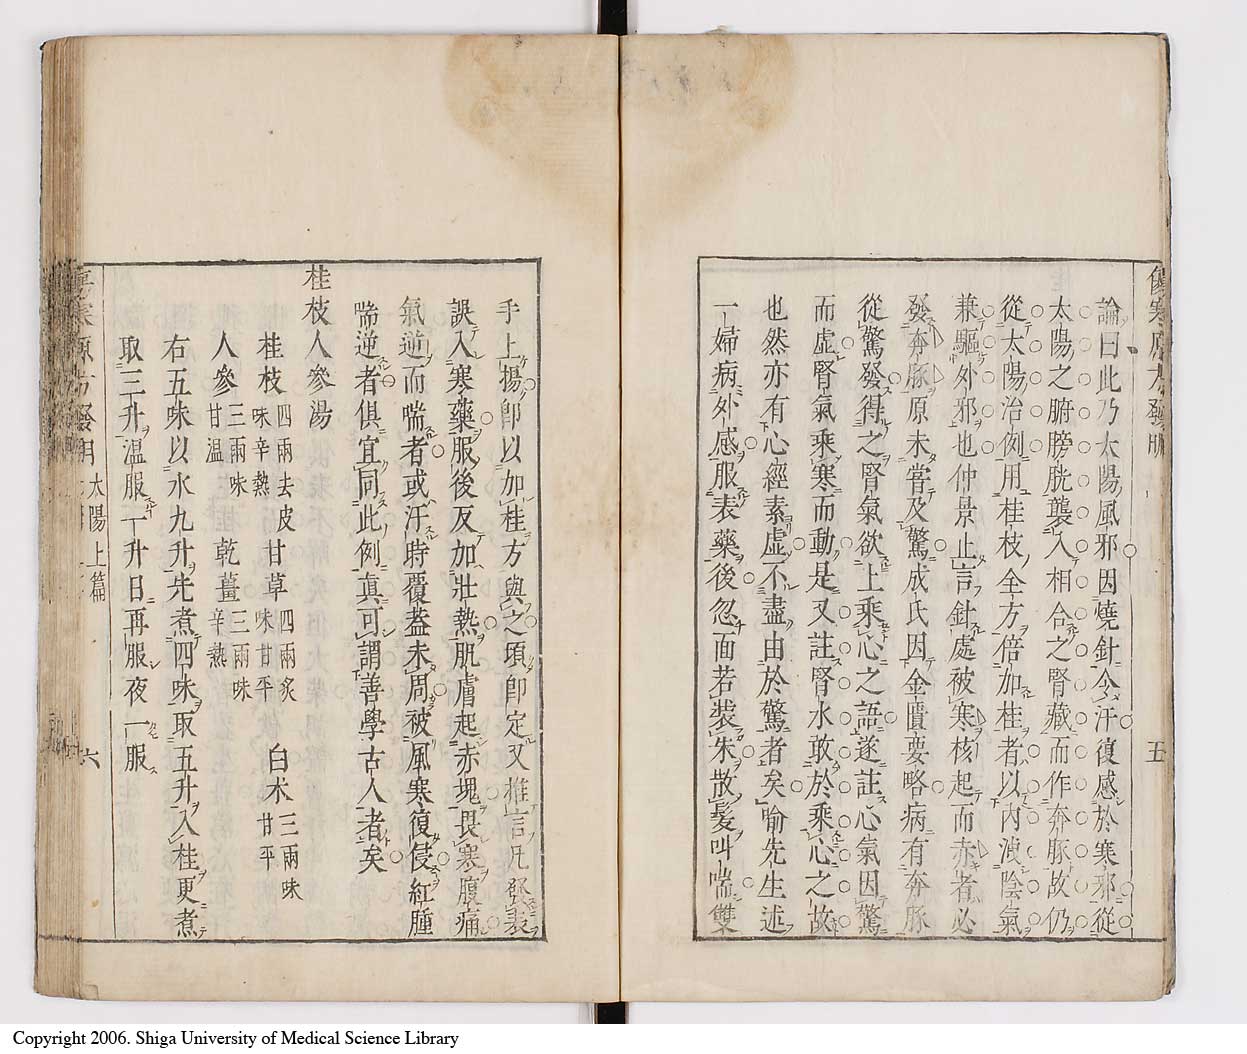 傷寒原方發明
五
論曰此乃太陽風邪因燒針令汗復感於寒邪從
太陽之腑膀胱襲入相合之腎藏而作奔豚故仍
從太陽治例用桂枝全方倍加桂者以內泄陰氣
兼驅外邪也仲景止言針處被寒核起而赤者必
發奔豚原未嘗及驚成氏因金匱要略病有奔豚
從驚發得之腎氣欲上乘心之語遂註心氣因驚
而虛腎氣乘寒而動是又註腎水敢於乘心之故
也然亦有心經素虛不盡由於驚者矣喻先生述
一婦病外感服表藥後忽面若裝朱散髮叫喘雙
手上揚卽以加桂方與之頃卽定又推言凡發表
誤入寒藥服後反加壯熱肌膚起赤塊畏寒腹痛
氣逆而喘者或汗時覆蓋未周被風寒復侵紅腫
喘逆者俱宜同此例眞可謂善學古人者矣
桂枝人參湯
桂枝四兩去皮味辛熱 甘草四兩炙味甘平 白朮三兩味甘平
人參三兩味甘溫 乾薑三兩味辛熱
右五味以水九升先煮四味取五升入桂更煮
取三升溫服一升日再服夜一服
寒原方發明 太陽上篇 六
Copyright 2006. Shiga University of Medical Science Library